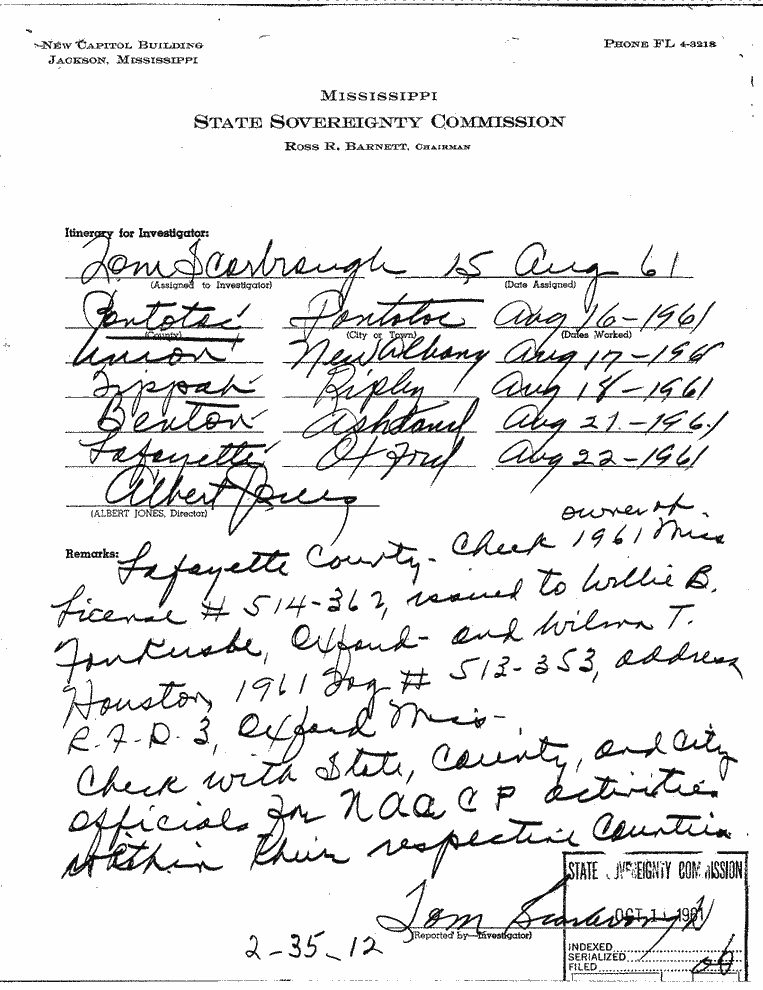 NEW CAPITOL BUILDING
JACKSON, MISSISSIPPI
PHONE FL 4-3218
MISSISSIPPI
STATE SOVEREIGNTY COMMISSION
ROSS R. BARNETT, CHAIRMAN
Itinerary for Investigator:
Tom Scarbrough 15 Aug 61
(Assigned to Investigator) (Date Assigned)
Pontotoc Pontotoc Aug 16-1961
(County) (City or Town) (Dates Worked)
Union New Albany Aug 17-1961
Tippah Ripley Aug 18-1961
Benton Ashland Aug 21-1961
Lafayette Oxford Aug 22-1961
Albert Jones
(ALBERT JONES, Director)
owner of
Remarks: Lafayette County- Check 1961 Miss
License # 514-362, issued to Willie B.
Oxford- and Wilma T.
Houston, 1961 Tag # 513-353, address
R.F.D. 3, Oxford Miss-
Check with State, County, and City
officials for NAACP activities
within their respective Counties.
Tom Scarbrough
(Reported by-Investigator)
2-35-12
STATE SOVEREIGNTY COMMISSION
OCT 1961
INDEXED
SERIALIZED
FILED